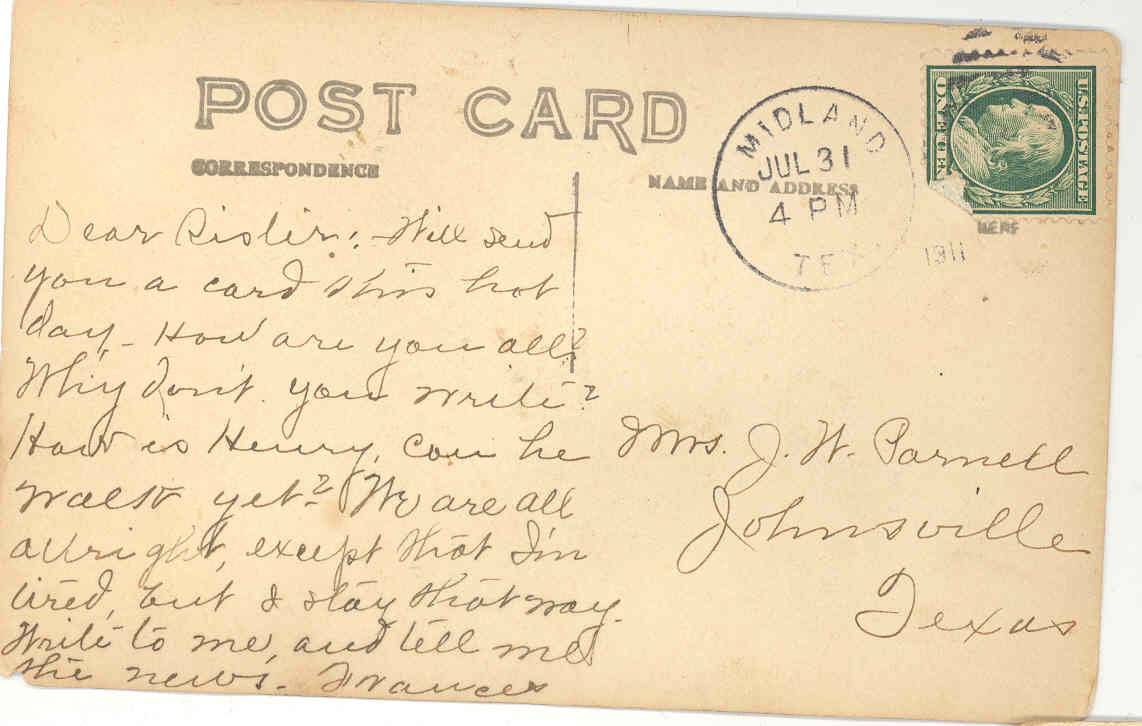 POST CARD
CORRESPONDENCE
NAME AND ADDRESS
HERE
MIDLAND
JUL 31
4 PM
TEX
1911
U.S. POSTAGE
ONE CEN
Dear Sister:- Will send
you a card this hot
day,- How are you all?
Why don't you write?
How is Henry, can he
walk yet? We are all
allright, except that I'm
tired, but I stay that way.
Write to me, and tell me
the news.- Frances
Mrs. J. W. Parnell
Johnsville
Texas